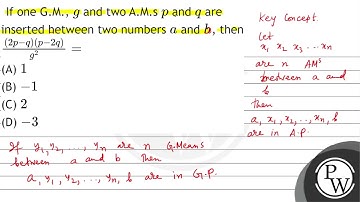 If one G.M., g and two A.M.s p and q are
inserted between two numbers a and b, then
(2p−q)(p−2q)/g² =
(A) 1
(B) −1
(C) 2
(D) −3
Key Concept.
Let
x₁ x₂ x₃ ... xₙ
are n AMs
between a and
b
then
a, x₁, x₂, .., xₙ, b
are in A.P.
If y₁, y₂, ..., yₙ are n G.Means
between a and b then
a, y₁, y₂, ..., yₙ, b are in G.P.
PW